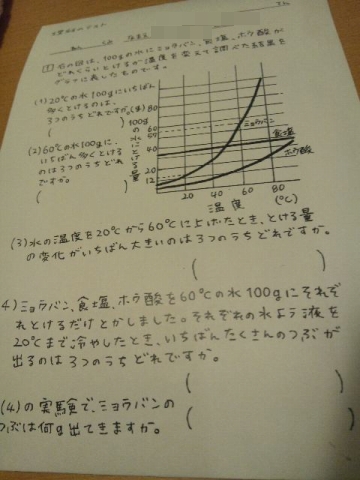 1 右の図は、100gの水にミョウバン、食塩、ホウ酸が
どれくらいとけるか温度を変えて調べた結果を
グラフに表したものです。
(1) 20℃の水100gにいちばん
多くとけるのは、
3つのうちどれですか。
( )
(2) 60℃の水100gに、
いちばん多くとける
のは3つのうちどれ
ですか。
( )
(g)
100gの水にとける量
80
60
40
20
12
ミョウバン
食塩
ホウ酸
0 20 40 60 80
温度 (℃)
(3) 水の温度を20℃から60℃に上げたとき、とける量
の変化がいちばん大きいのは3つのうちどれですか。
( )
4) ミョウバン、食塩、ホウ酸を60℃の水100gにそれぞ
れとけるだけとかしました。それぞれの水よう液を
20℃まで冷やしたとき、いちばんたくさんのつぶが
出るのは3つのうちどれですか。
( )
(4)の実験で、ミョウバンの
つぶは何g出てきますか。
( )